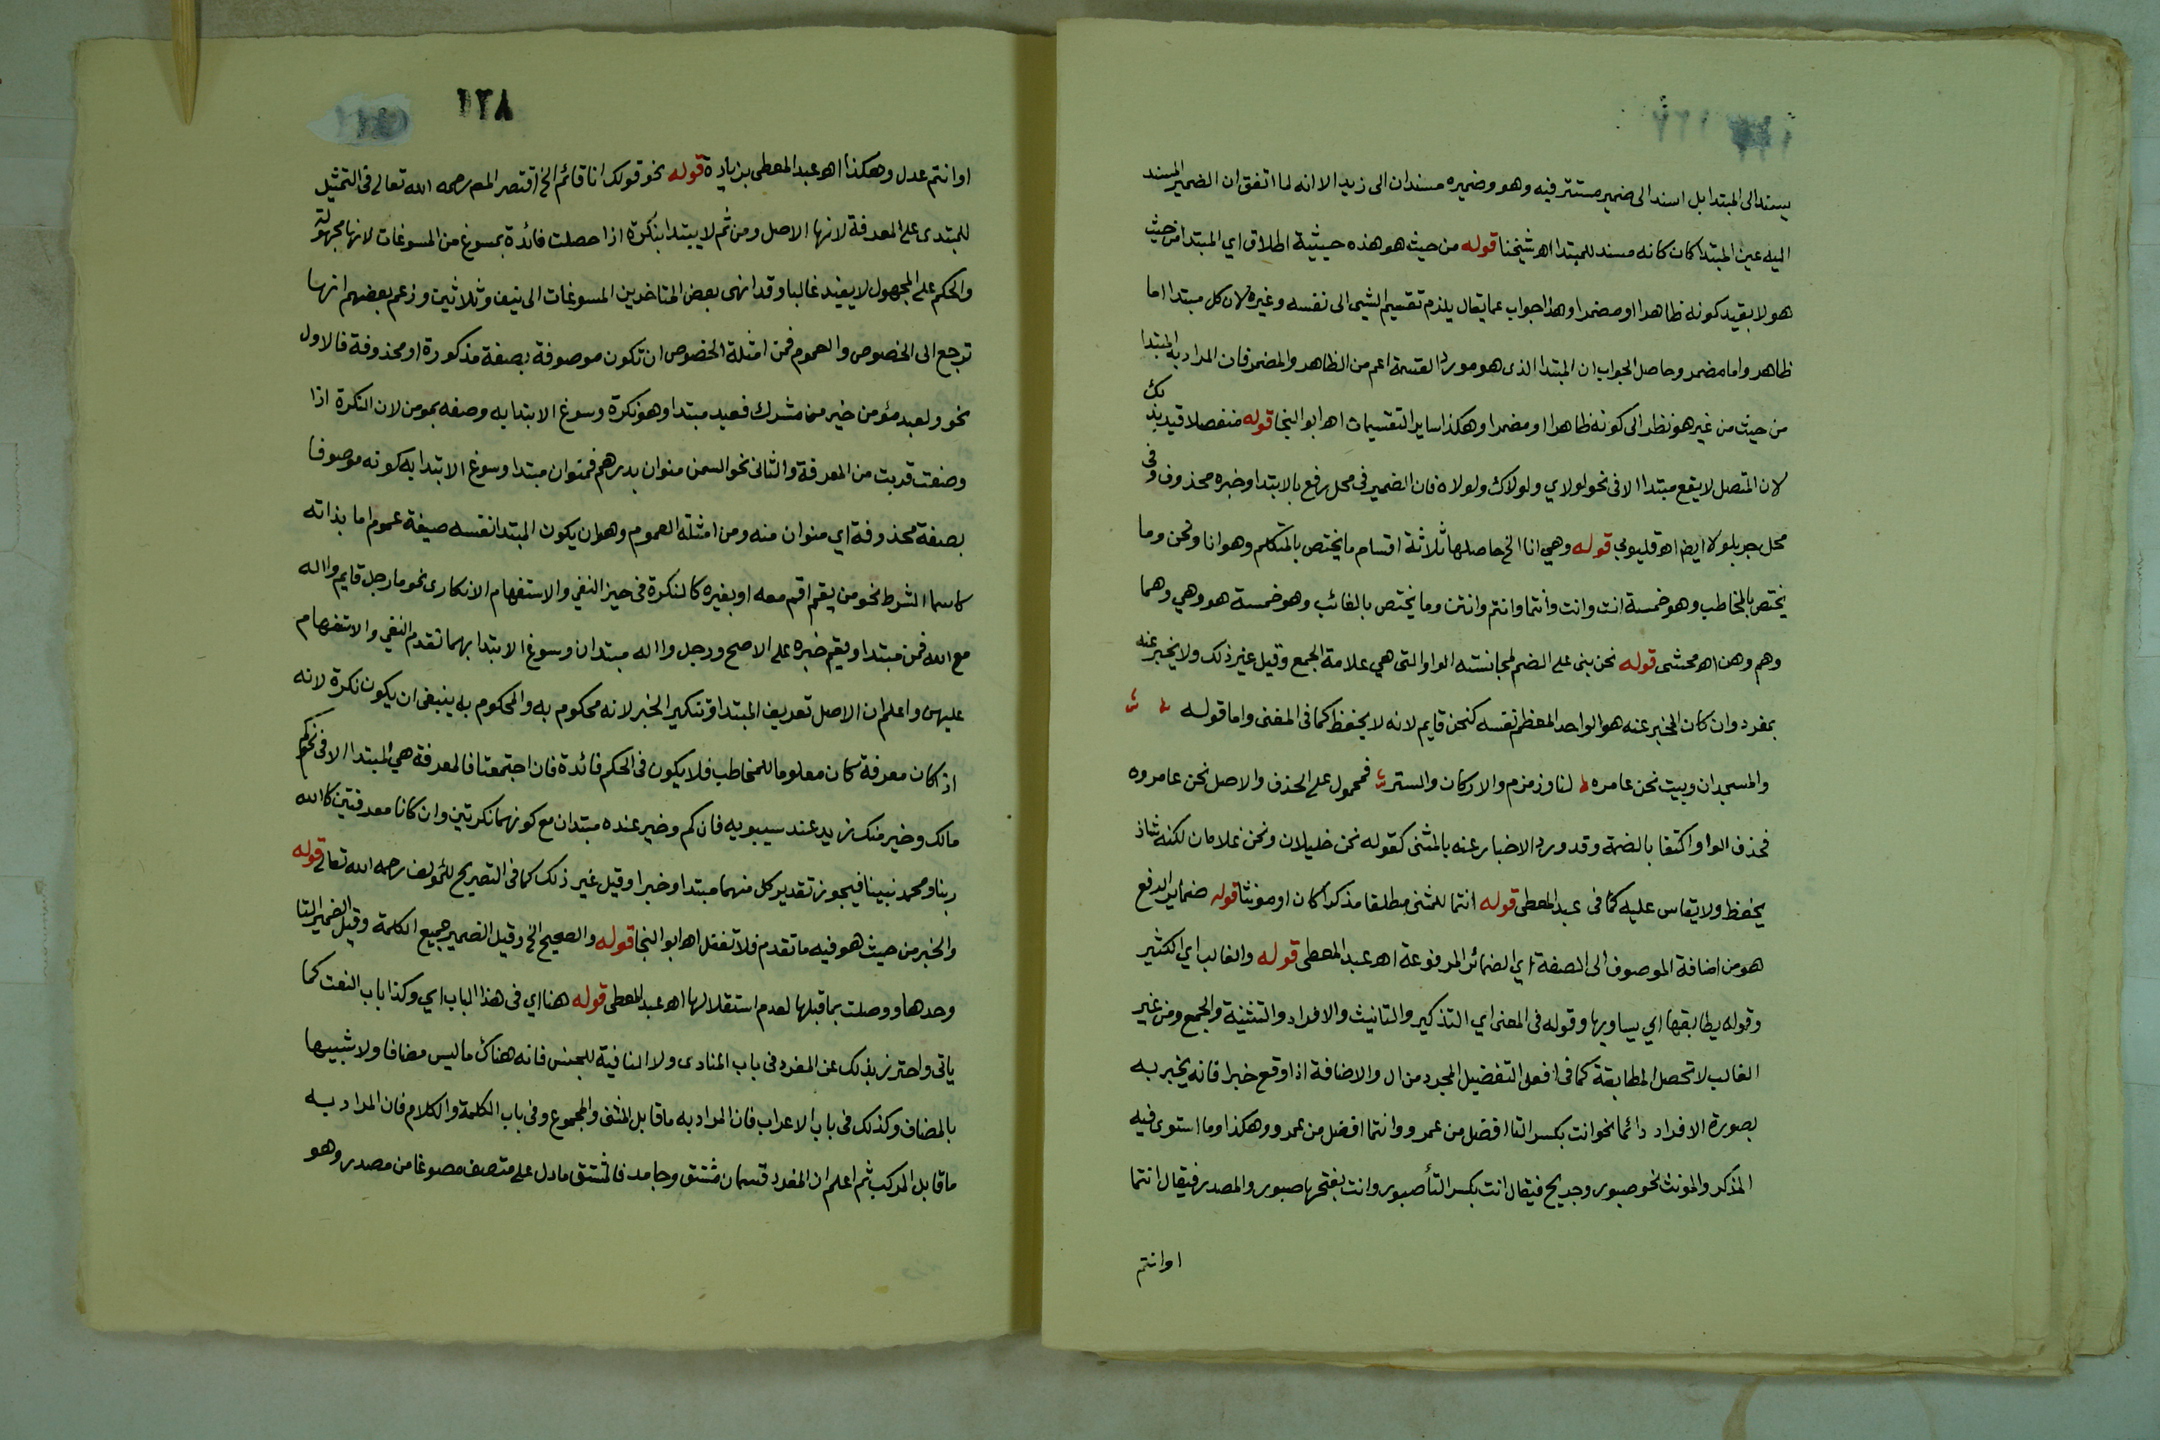 يستدالى المبتدا بل اسند الى ضمير مستتر فيه وهو وضميره مسندان الى زيد الا انه لما اتفق ان الضمير المسند
اليه عين المبتدا كان كانه مسند للمبتدا اهـ شيخنا قوله من حيث هو هذه حيثية اطلاق اي المبتدا من حيث
هو لا بقيد كونه ظاهرا او مضمرا وهذا جواب عما يقال يلزم تقسيم الشيى الى نفسه وغيره لان كل مبتدا اما
ظاهر واما مضمر وحاصل الجواب ان المبتدا الذى هو مورد القسمة اعم من الظاهر والمضمر فان المراد به المبتدا
من حيث من غير هو نظر الى كونه ظاهرا او مضمرا وهكذا ساير التقسيمات اهـ ابو النجا قوله منفصلا قيد بذلك
لان المتصل لا يقع مبتدا الا فى نحو لولاي ولولاك ولولاه فان الضمير فى محل رفع بالابتدا وخبره محذوف وفى
محل جر بلولا ايضا اهـ قليوبي قوله وهي انا الخ حاصلها ثلاثة اقسام ما يختص بالمتكلم وهو انا ونحن وما
يختص بالمخاطب وهو خمسة انت وانت وأنتما وانتم وانتن وما يختص بالغائب وهو خمسة هو وهي وهما
وهم وهن اهـ محشى قوله نحن بنى على الضم لمجانسته الواو التى هي علامة الجمع وقيل غير ذلك ولا يخبر عنه
بمفرد وان كان المخبر عنه هو الواحد المعظم نفسه كنحن قايم لانه لا يحفظ كما فى المغنى واما قوله
والمسجدان وبيت نحن عامره لنا وزمزم والاركان والستر فمحمول على الحذف والاصل نحن عامروه
فحذف الواو اكتفا بالضمة وقد ورد الاخبار عنه بالمثنى كقوله نحن خليلان ونحن غلامان لكنه شاذ
يحفظ ولا يقاس عليه كما فى عبد المعطى قوله انتما للمثنى مطلقا مذكرا كان او مونثا قوله ضماير الرفع
هو من اضافة الموصوف الى الصفة اي الضمائر المرفوعة اهـ عبد المعطى قوله والغالب اي الكثير
وقوله يطابقها اي يساويها وقوله فى المعنى اي التذكير والتانيث والافراد والتثنية والجمع ومن غير
الغالب لا تحصل المطابقة كما فى افعل التفضيل المجرد من ال والاضافة اذا وقع خبرا فانه يخبر به
بصورة الافراد دائما نحو انت بكسر التا افضل من عمرو وانتما افضل من عمرو وهكذا وما استوى فيه
المذكر والمونث نحو صبور وجريح فيقال انت بكسر التأ صبور وانت بفتحها صبور والمصدر فيقال انتما
او انتم
١٢٨
او انتم عدل وهكذا اهـ عبد المعطى بزيادة قوله نحو قولك انا قائم الخ اقتصر المص رحمه الله تعالى فى التمثيل
للمبتدى على المعرفة لانها الاصل ومن ثم لا يبتدا بنكرة اذا حصلت فائدة بمسوغ من المسوغات لانها مجهولة
والحكم على المجهول لا يفيد غالبا وقد انهى بعض المتاخرين المسوغات الى نيف وثلاثين وزعم بعضهم انها
ترجع الى الخصوص والعموم فمن امثلة الخصوص ان تكون موصوفة بصفة مذكورة او محذوفة فالاول
نحو ولعبد مؤمن خير من مشرك فعبد مبتدا وهو نكرة وسوغ الابتدا به وصفه بمومن لان النكرة اذا
وصفت قربت من المعرفة والثانى نحو السمن منوان بدرهم فمنوان مبتدا وسوغ الابتدا به كونه موصوفا
بصفة محذوفة اي منوان منه ومن امثلة العموم وهو ان يكون المبتدا نفسه صيغة عموم اما بذاته
كاسما الشرط نحو من يقم اقم معه او بغيره كالنكرة فى حيز النفي والاستفهام الانكارى نحو ما رجل قايم واله
مع الله فمن مبتدا ويقم خبره على الاصح ورجل واله مبتدان وسوغ الابتدا بهما تقدم النفي والاستفهام
عليهما واعلم ان الاصل تعريف المبتدا وتنكير الخبر لانه محكوم به والمحكوم به ينبغى ان يكون نكرة لانه
اذ كان معرفة كان معلوما للمخاطب فلا يكون فى الحكم فائدة فان اجتمعتا فالمعرفة هي المبتدا الا فى نحو كم
مالك وخير منك زيد عند سيبويه فان كم وخير عنده مبتدان مع كونهما نكرتين وان كانا معرفتين كالله
ربنا ومحمد نبينا فيجوز تقدير كل منهما مبتدا وخبرا وقيل غير ذلك كما فى التصريح للمولف رحمه الله تعالى قوله
والخبر من حيث هو فيه ما تقدم فلا تغفل اهـ ابو النجا قوله والصحيح الخ وقيل الضمير جميع الكلمة وقيل الضمير التا
وحدها ووصلت بما قبلها لعدم استقلالها اهـ عبد المعطى قوله هنا اي فى هذا الباب اي وكذا باب النعت كما
ياتى واحترز بذلك عن المفرد فى باب المنادى ولا النافية للجنس فانه هناك ما ليس مضافا ولا شبيها
بالمضاف وكذلك فى باب الاعراب فان المراد به ما قابل المثنى والمجموع وفى باب الكلمة والكلام فان المراد به
ما قابل المركب ثم اعلم ان المفرد قسمان مشتق وجامد فالمشتق ما دل على متصف مصوغا من مصدر وهو